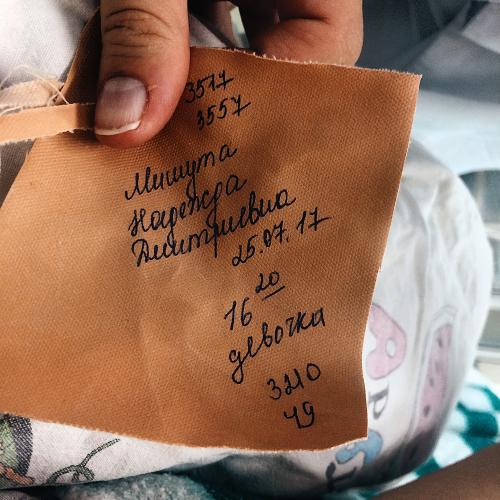 3517
3557
Мишута
Надежда
Дмитриевна
25.07.17
16 20
девочка
3210
49